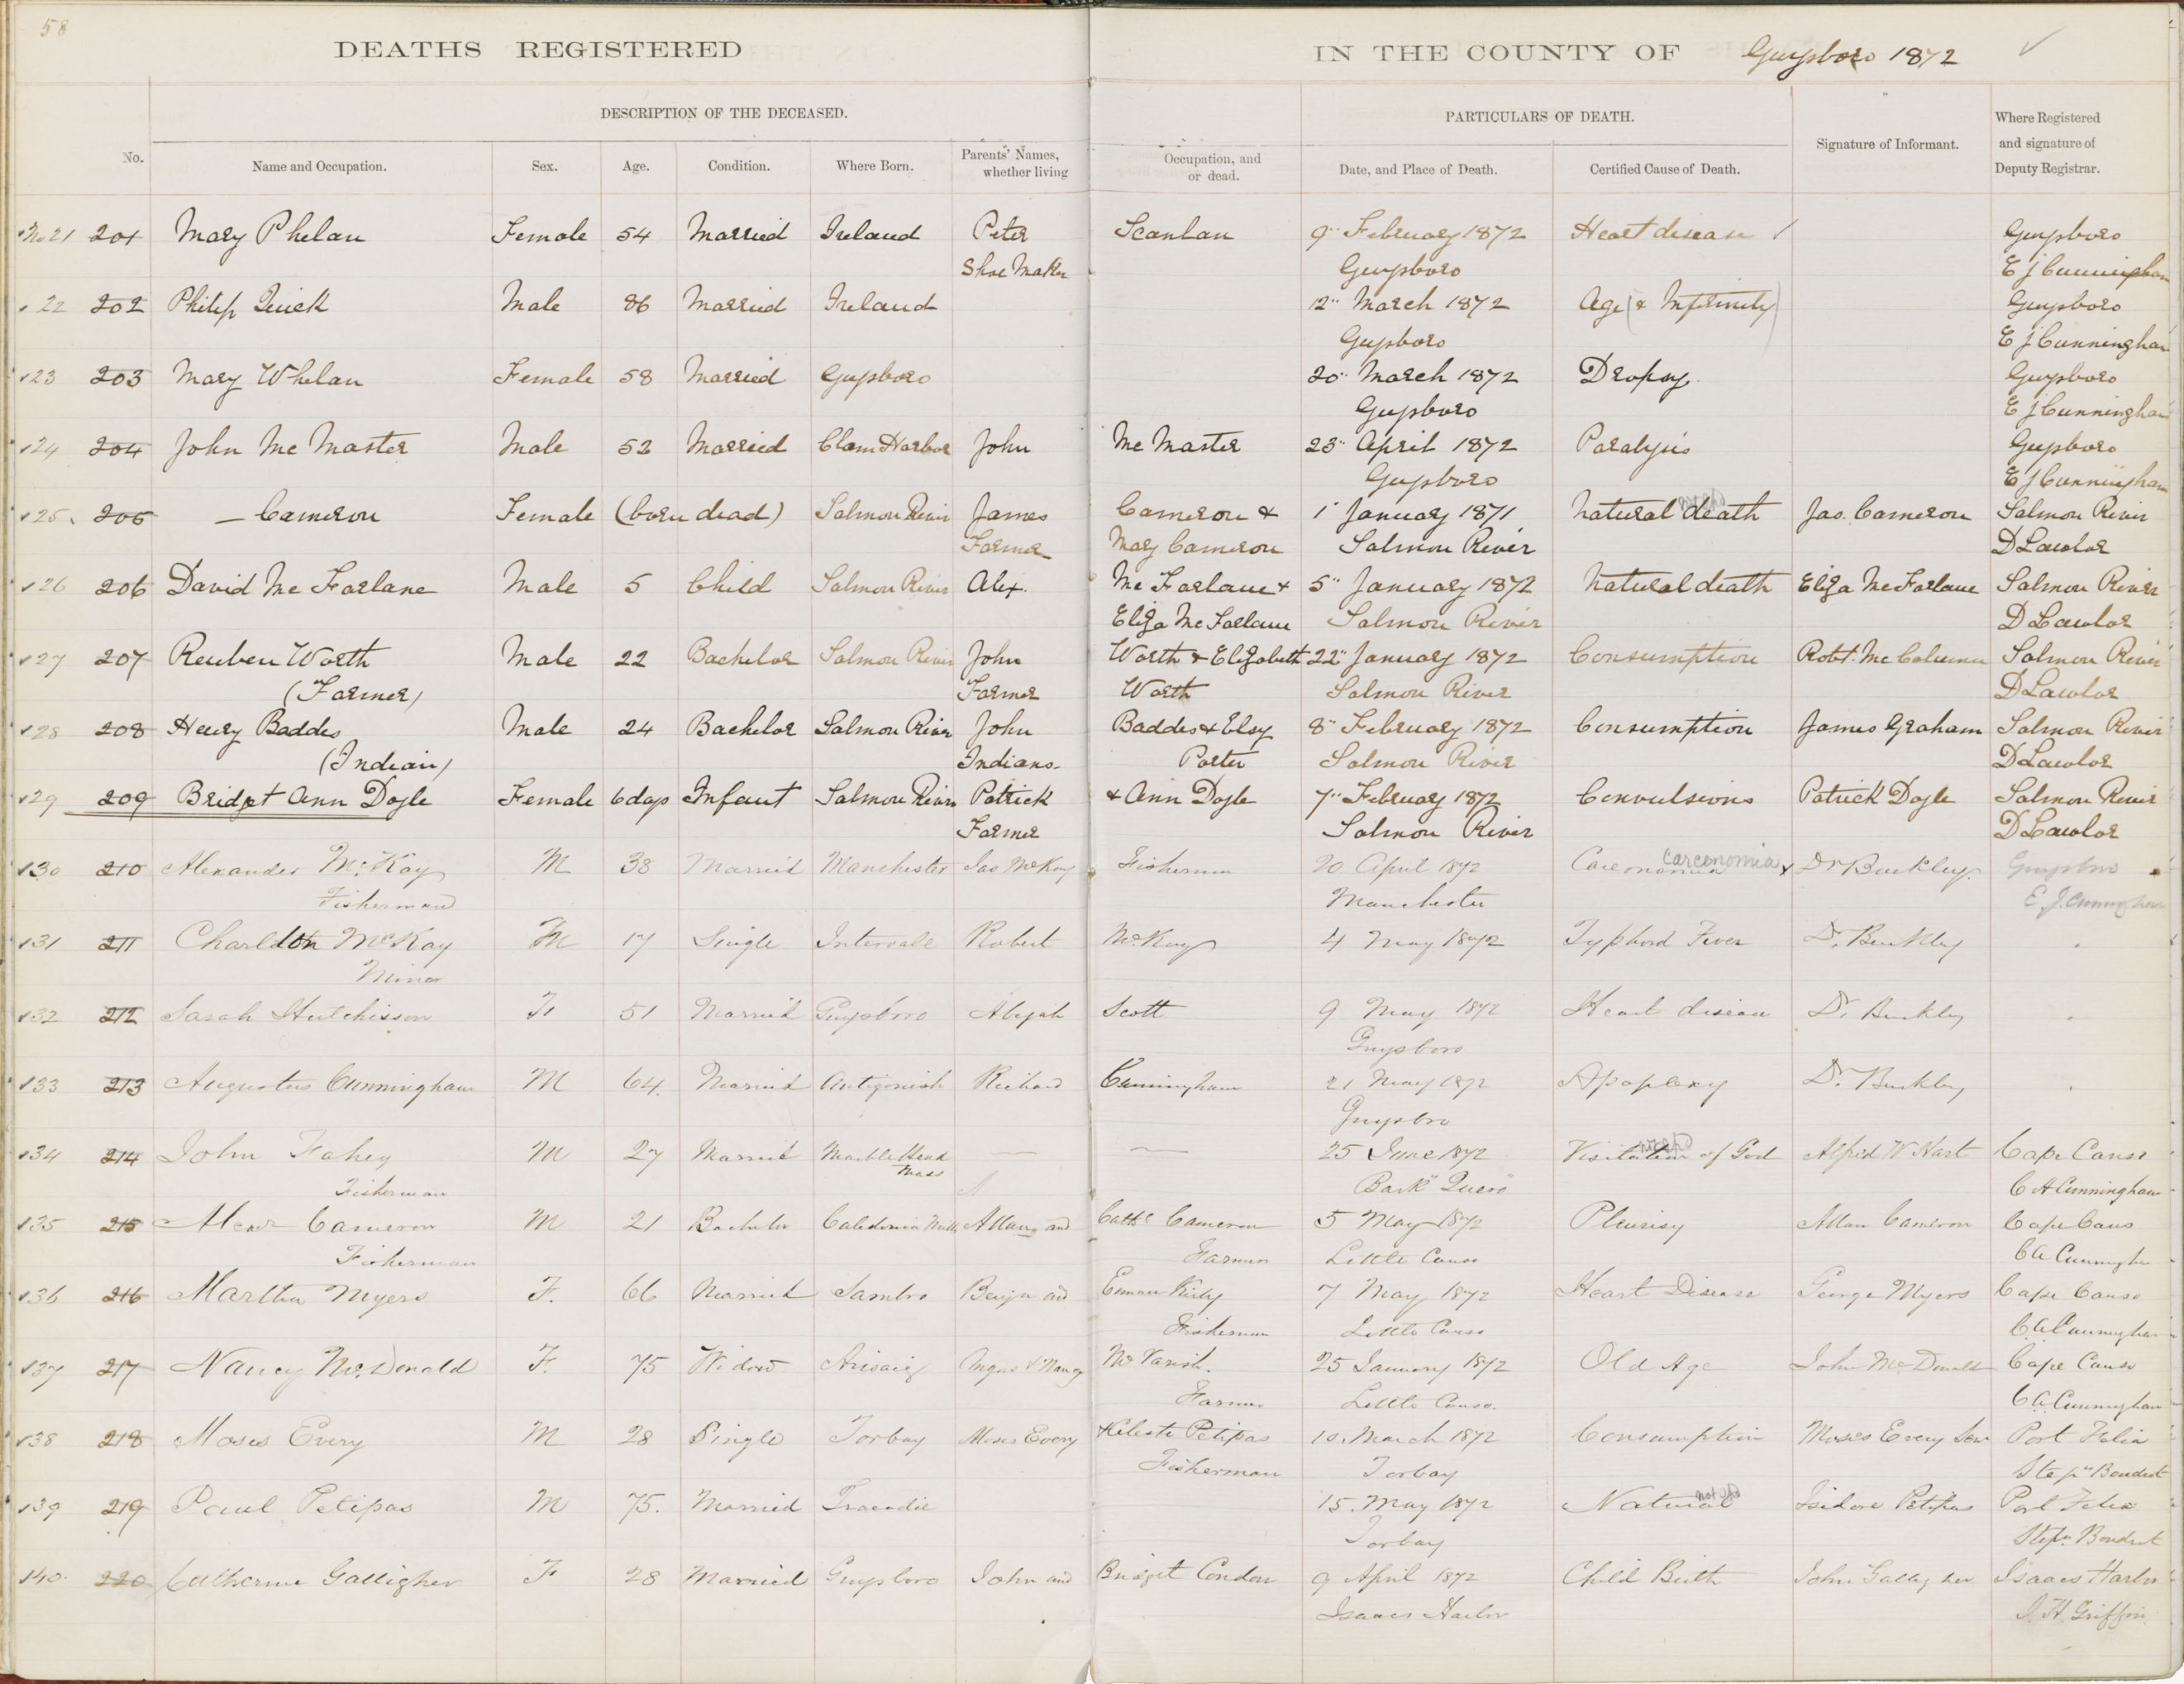 58
DEATHS REGISTERED IN THE COUNTY OF Guysboro 1872
DESCRIPTION OF THE DECEASED. PARTICULARS OF DEATH. Signature of Informant. Where Registered and signature of Deputy Registrar.
No. Name and Occupation. Sex. Age. Condition. Where Born. Parents' Names, whether living Occupation, and or dead. Date, and Place of Death. Certified Cause of Death.
No 21 201 Mary Phelan Female 54 Married Ireland Peter Scanlan 9" February 1872 Heart disease / Guysboro
Shoe Maker Guysboro E J Cunningham
22 202 Philip Quick Male 86 Married Ireland 12" March 1872 Age (& Infirmity) Guysboro
Guysboro E J Cunningham
23 203 Mary Whelan Female 58 Married Guysboro 20" March 1872 Dropsy. Guysboro
Guysboro E J Cunningham
24 204 John Mc Master Male 52 Married Clam Harbor John Mc Master 23" April 1872 Paralysis Guysboro
Guysboro E J Cunningham
25 205 — Cameron Female (born dead) Salmon River James Cameron & 1" January 1871 Natural death Jas. Cameron Salmon River
Farmer Mary Cameron Salmon River D Lawlor
26 206 David Mc Farlane Male 5 Child Salmon River Alex. Mc Farlane & 5" January 1872 Natural death Eliza Mc Farlane Salmon River
Eliza Mc Farlane Salmon River D Lawlor
27 207 Reuben Worth Male 22 Bachelor Salmon River John Worth & Elizabeth 22" January 1872 Consumption Robt. Mc Salmon River
(Farmer) Farmer Worth Salmon River D Lawlor
28 208 Henry Baddes Male 24 Bachelor Salmon River John Baddes & Elsy 8" February 1872 Consumption James Graham Salmon River
(Indian) Indians. Porter Salmon River D Lawlor
29 209 Bridget Ann Doyle Female 6 days Infant Salmon River Patrick & Ann Doyle 7" February 1872 Convulsions Patrick Doyle Salmon River
Farmer Salmon River D Lawlor
30 210 Alexander McKay M 38 Married Manchester Jas McKay Fisherman 20 April 1872 Carcenomia Dr Buckley. Guysboro
Fisherman Manchester E. J. Cunningham
31 211 Charldton McKay M 17 Single Intervale Robert McKay 4 May 1872 Typhoid Fever Dr. Buckley "
Minor
32 212 Sarah Hutchisson F 51 Married Guysboro Abijah Scott 9 May 1872 Heart disease Dr. Buckley "
Guysboro
33 213 Augustus Cunningham M 64. Married Antigonish Richard Cunningham 21 May 1872 Apoplexy Dr. Buckley "
Guysbro
34 214 John Fahey M 27 Married Marble Head — — 25 June 1872 Visitation of God Alfred W Hart Cape Canso
Fisherman Mass Bark "Quero" C A Cunningham
35 215 Alexr Cameron M 21 Bachelor Caledonia Mills Allan and Cathe Cameron 5 May 1872 Pleurisy Allan Cameron Cape Canso
Fisherman Farmer Little Canso C A Cunningham
36 216 Martha Myers F. 66 Married Sambro Benjn and Kirby 7 May 1872 Heart Disease George Myers Cape Canso
Fisherman Little Canso C. A Cunningham
37 217 Nancy Mc Donald F. 75 Widow Arisaig Angus & Nancy Mc Varish. 25 January 1872 Old Age John Mc Donald Cape Canso
Farmer Little Canso. C A Cunningham
38 218 Moses Every M 28 Single Torbay Moses Every & Celeste Petipas 10. March 1872 Consumption Moses Every Senr Port Felix
Fisherman Torbay Stepn Boudrot
39 219 Paul Petipas M 75. Married Tracadie 15. May 1872 Natural Isidore Petipas Port Felix
Torbay Stepn Boudrot
140. 220 Catherine Galligher F 28 Married Guysboro John and Bridget Condon 9 April 1872 Child Birth John Gallagher Isaacs Harbor
Isaacs Harbor S. H. Griffin